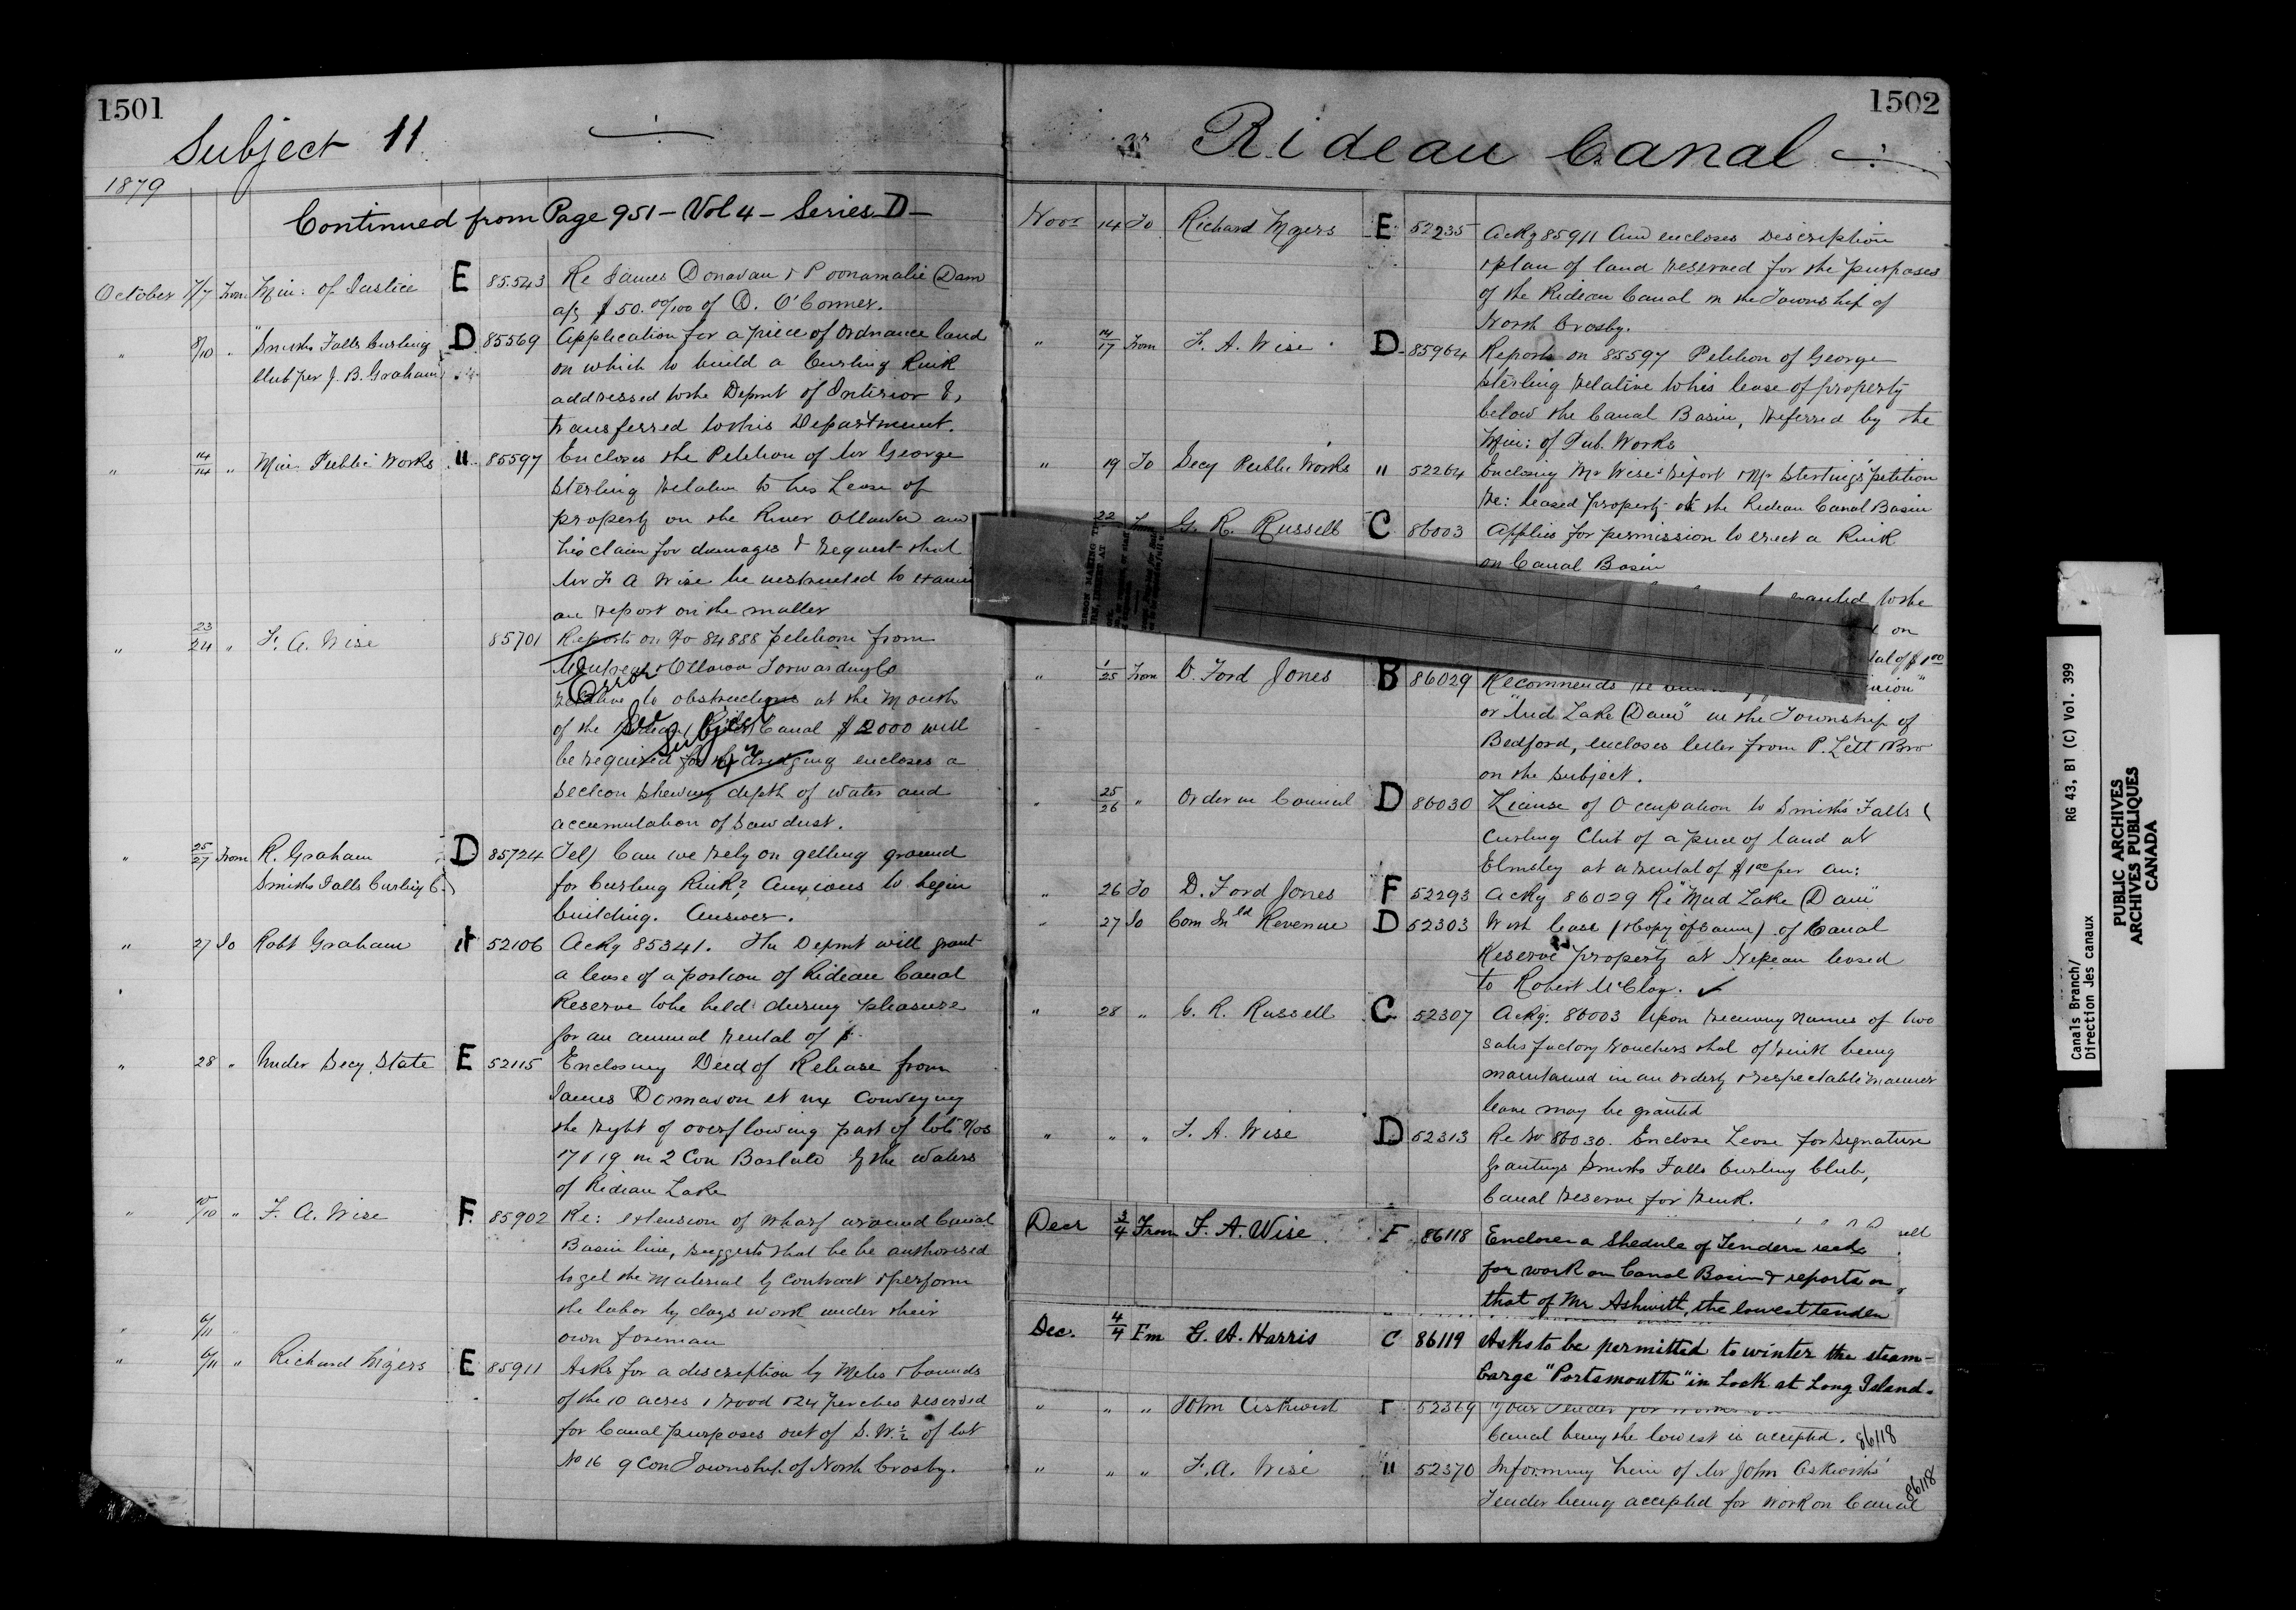 1501
Subject 11
1879
Continued from Page 951 - Vol 4 - Series D -
October 7/7 From Min: of Justice E 85.543 Re James Donavan & Poonamalie Dam
a/c $50.00/100 of D. O'Connor.
" 8/10 " Smiths Falls Curling D 85569 Application for a piece of Ordnance land
Club per J. B. Graham on which to build a Curling Rink
addressed to the Depmt of Interior &
transferred to this Department.
" 14/14 " Min Public Works " 85597 Encloses the Petition of Mr George
Sterling relative to his Lease of
property on the River Ottawa and
his claim for damages & request that
Mr F A Wise be instructed to
an report on the matter
" 23/24 " F. A. Wise 85701 Reports on No 84888 petition from
Montreal & Ottawa Forwarding Co
relative to obstructions at the Mouth
of the Canal $2000 will
be required for the dredging encloses a
section shewing depth of water and
accumulation of Sawdust.
Error
See Subject
" 25/27 From R. Graham D 85724 Tel) Can we rely on getting ground
Smiths Falls Curling C. for Curling Rink? Anxious to begin
building. Answer.
" 27 To Robt Graham " 52106 Ackg 85341. The Depmt will grant
a lease of a portion of Rideau Canal
Reserve to be held during pleasure
for an annual rental of $
" 28 " Under Secy State E 52115 Enclosing Deed of Release from
James Donnavon et ux Conveying
the right of overflowing part of lots Nos
17 & 19 in 2 Con Bastard by the Waters
of Rideau Lake
" 10/10 " F. A. Wise F. 85902 Re: extension of Wharf around Canal
Basin line, suggests that he be authorised
to get the Material by Contract & perform
the labor by days work under their
own foreman
" 6/11 "
" 6/11 " Richard Myers E 85911 Asks for a discription by Metes & bounds
of the 10 acres 1 rood & 24 perches reserved
for Canal purposes out of S.W. ½ of lot
No 16 9 Con Township of North Crosby.
1502
Rideau Canal
Novr 14 To Richard Myers E 52235 Ackg 85911 And encloses Description
& plan of land reserved for the purposes
of the Rideau Canal in the Township of
North Crosby.
" 14/17 From F. A. Wise D 85964 Reports on 85597 Petition of George
Sterling relative to his lease of property
below the Canal Basin, referred by the
Min: of Pub. Works
" 19 To Secy Public Works " 52264 Enclosing Mr Wise's Report & Mr Sterling's petition
Re: leased property at the Rideau Canal Basin
22 G. R. Russell C 86003 Applies for permission to erect a Rink
on Canal Basin
to the
on
$1.00
" 1/25 From D. Ford Jones B 86029 Recommends
or "Mud Lake Dam" in the Township of
Bedford, encloses letter from P. Lett Bro
on the subject.
" 25/26 " Order in Council D 86030 License of Occupation to Smiths Falls
Curling Club of a piece of land at
Elmsley at a rental of $1.00 per an:
" 26 To D. Ford Jones F 52293 Ackg 86029 Re "Mud Lake Dam"
" 27 To Com Inld Revenue D 52303 With lease (& Copy of same) of Canal
Reserve property at Nepean leased
to Robert McCloy. ✓
" 28 " G. R. Russell C 52307 Ackg: 86003 Upon receiving names of two
satisfactory vouchers that of rink being
maintained in an orderly & respectable manner
leave may be granted
" " " F. A. Wise D 52313 Re No 86030. Enclose Lease for Signature
Grantings Smiths Falls Curling Club,
Canal Reserve for Rink.
Decr 3/4 From F. A. Wise F 86118 Encloses a Shedule of Tenders recd
for work on Canal Basin & reports on
that of Mr Ashwith, the lowest tender
Dec. 4/4 Fm G. A. Harris C 86119 Asks to be permitted to winter the steam-
barge "Portsmouth" in Lock at Long Island.
" " " John Askwith F 52369 Your Tender for
Canal being the lowest is accepted. 86118
" " " F. A. Wise " 52370 Informing him of Mr John Askwiths'
Tender being accepted for Work on Canal
86118
Canals Branch/
Direction des canaux
RG 43, B1 (C) Vol. 399
PUBLIC ARCHIVES
ARCHIVES PUBLIQUES
CANADA